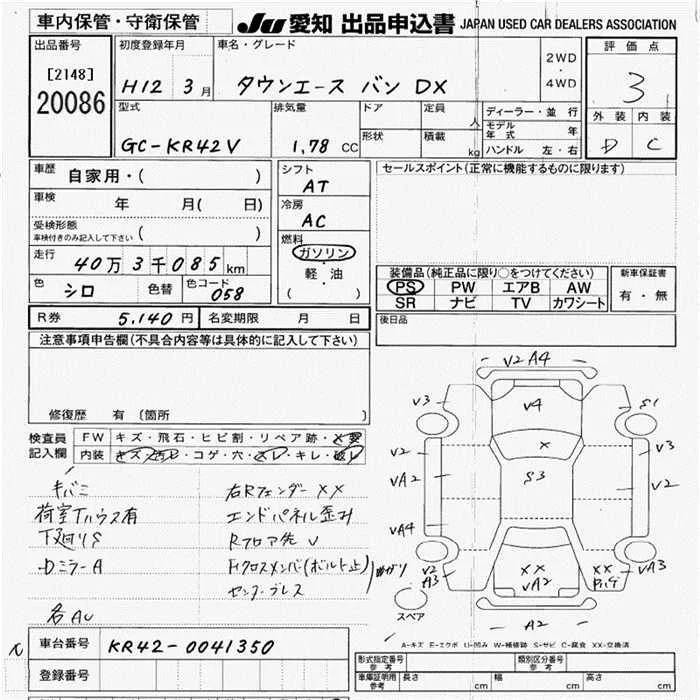 車内保管・守衛保管
JU 愛知 出品申込書 JAPAN USED CAR DEALERS ASSOCIATION
出品番号
[2148]
20086
初度登録年月
H12 3月
車名・グレード
タウンエース バン DX
2WD
・
4WD
評価点
3
外装 内装
D C
型式
GC-KR42V
排気量
1.78 CC
ドア
形状
定員
人
積載
kg
ディーラー・並行
モデル年式 年
ハンドル 左・右
車歴 自家用・( )
車検 年 月( 日)
受検形態
車検付きのみ記入して下さい ( )
走行 40万3千085km
色 シロ 色替 色コード 058
シフト
AT
冷房
AC
燃料
ガソリン
・
軽・油
( )
セールスポイント(正常に機能するものに限ります)
装備品(純正品に限り○をつけてください)
PS PW エアB AW
SR ナビ TV カワシート
新車保証書
有・無
R券 5,140円 名変期限 月 日
後日品
注意事項申告欄(不具合内容等は具体的に記入して下さい)
修復歴 有 〔箇所 〕
検査員
記入欄
FW キズ・飛石・ヒビ割・リペア跡・X要
内装 キズ・汚レ・コゲ・穴・スレ・キレ・破レ
キバミ
荷室Tハウス有
下廻りS
Dミラー A
各AU
右Rフェンダー XX
エンドパネル歪み
Rフロア先 V
Fクロスメンバ(ボルト止)
センターブレス
V2 A4
V3
V4
S1
V2
X
V3
VA2
S3
V2
VA4
V2
A3
XX
VA2
XX
VA3
A2
スペア
A-キズ E-エクボ U-凹み W-補修跡 S-サビ C-腐食 XX-交換済
車台番号 KR42-0041350
登録番号
形式指定番号
参考
類別区分番号
参考
車庫証明用
参考
長さ cm 幅 cm 高さ cm